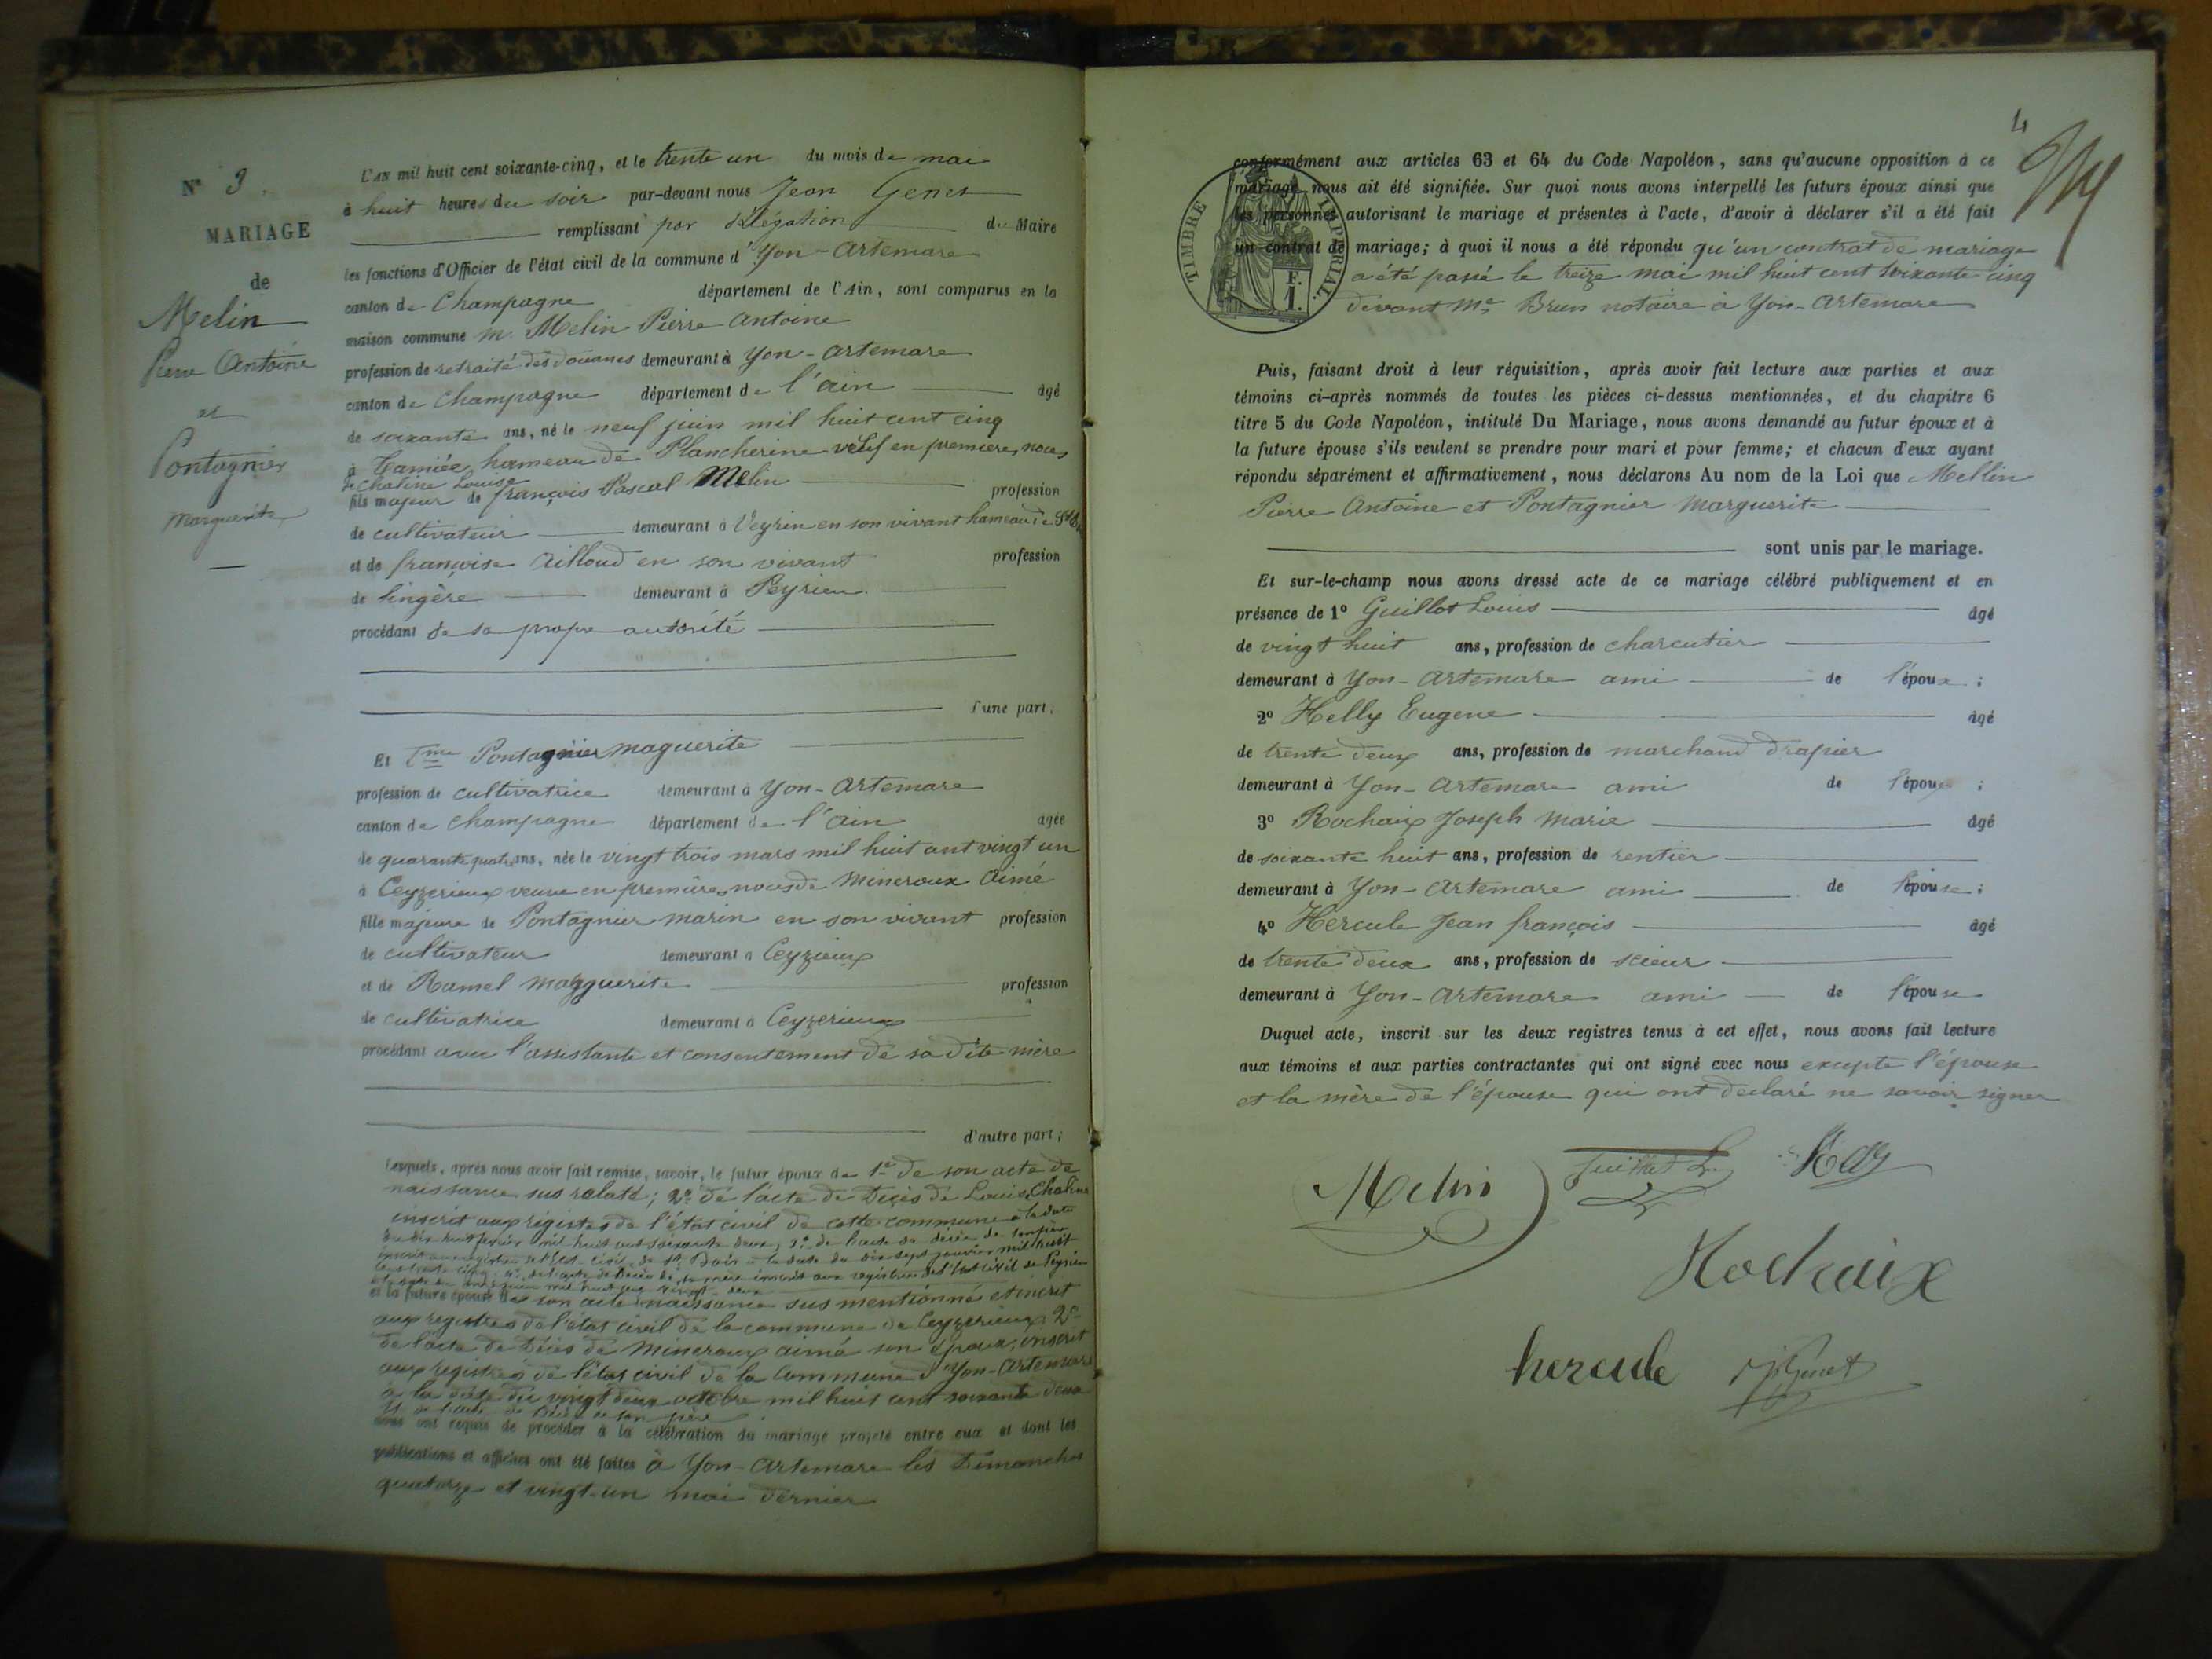 N° 3.
MARIAGE
de
Melin
Pierre Antoine
et
Pontagnier
Marguerite
L'AN mil huit cent soixante-cinq, et le trente un du mois de mai
à huit heures du soir par-devant nous Jean Genet
remplissant par délégation du Maire
les fonctions d'Officier de l'état civil de la commune d'Yon-Artemare
canton de Champagne département de l'Ain, sont comparus en la
maison commune M. Melin Pierre Antoine
profession de retraité des douanes demeurant à Yon-Artemare
canton de Champagne département de l'ain âgé
de soixante ans, né le neuf juin mil huit cent cinq
à Tamiée hameau de Plancherine veuf en premières noces
de Chaline Louise
fils majeur de françois Pascal Melin profession
de cultivateur demeurant à Veyrin en son vivant hameau de St
et de françoise Ailloud en son vivant profession
de lingère demeurant à Peyrieu
procédant de sa propre autorité
d'une part;
Et Dme Pontagnier maguerite
profession de cultivatrice demeurant à Yon-Artemare
canton de Champagne département de l'ain âgée
de quarante quatre ans, née le vingt trois mars mil huit cent vingt un
à Ceyzerieux veuve en premières noces de Mineroux Aimé
fille majeure de Pontagnier Marin en son vivant profession
de cultivateur demeurant à Ceyzieux
et de Ramel Margguerite profession
de cultivatrice demeurant à Ceyzerieux
procédant avec l'assistante et consentement de sa dite mère
d'autre part;
Lesquels, après nous avoir fait remise, savoir, le futur époux de 1° de son acte de
naissance sus relaté; 2° de l'acte de Décès de Louise Chaline
inscrit aux registres de l'état civil de cette commune à la date
du dix huit février mil huit cent soixante deux, 3° de l'acte de décès de son père
inscrit aux registres de l'état civil de St Bois à la date du dix sept janvier mil huit
cent trente cinq 4° de l'acte de Décès de sa mère inscrit aux registres de l'état civil de Peyrieu
mil huit cent vingt deux
et la future épouse de son acte naissance sus mentionné et inscrit
aux registres de l'état civil de la commune de Ceyzerieux 2°
de l'acte de Décès de Mineroux aimé son époux, inscrit
aux registres de l'état civil de la Commune d'Yon-Artemare
à la date du vingt deux octobre mil huit cent soixante deux
et de l'acte de Décès de son père
nous ont requis de procéder à la célébration du mariage projeté entre eux et dont les
publications et affiches ont été faites à Yon-Artemare les Dimanches
quatorze et vingt-un mai dernier
4
conformément aux articles 63 et 64 du Code Napoléon, sans qu'aucune opposition à ce
mariage nous ait été signifiée. Sur quoi nous avons interpellé les futurs époux ainsi que
les personnes autorisant le mariage et présentes à l'acte, d'avoir à déclarer s'il a été fait
un contrat de mariage; à quoi il nous a été répondu qu'un contrat de mariage
a été passé le treize mai mil huit cent soixante cinq
devant Me Brun notaire à Yon-Artemare
TIMBRE IMPÉRIAL.
F.
1.
Puis, faisant droit à leur réquisition, après avoir fait lecture aux parties et aux
témoins ci-après nommés de toutes les pièces ci-dessus mentionnées, et du chapitre 6
titre 5 du Code Napoléon, intitulé Du Mariage, nous avons demandé au futur époux et à
la future épouse s'ils veulent se prendre pour mari et pour femme; et chacun d'eux ayant
répondu séparément et affirmativement, nous déclarons Au nom de la Loi que Mellin
Pierre Antoine et Pontagnier Marguerite
sont unis par le mariage.
Et sur-le-champ nous avons dressé acte de ce mariage célébré publiquement et en
présence de 1° Guillot Louis âgé
de vingt huit ans, profession de charcutier
demeurant à Yon-Artemare ami de l'époux;
2° Helly Eugene âgé
de trente deux ans, profession de marchand drapier
demeurant à Yon-Artemare ami de l'époux;
3° Rochaix Joseph Marie âgé
de soixante huit ans, profession de rentier
demeurant à Yon-Artemare ami de l'épouse;
4° Hercule Jean françois âgé
de trente deux ans, profession de scieur
demeurant à Yon-Artemare ami de l'épouse
Duquel acte, inscrit sur les deux registres tenus à cet effet, nous avons fait lecture
aux témoins et aux parties contractantes qui ont signé avec nous excepte l'épouse
et la mère de l'épouse qui ont declaré ne savoir signer
Melin
Guillot L.
Helly
Rochaix
hercule
J. Genet